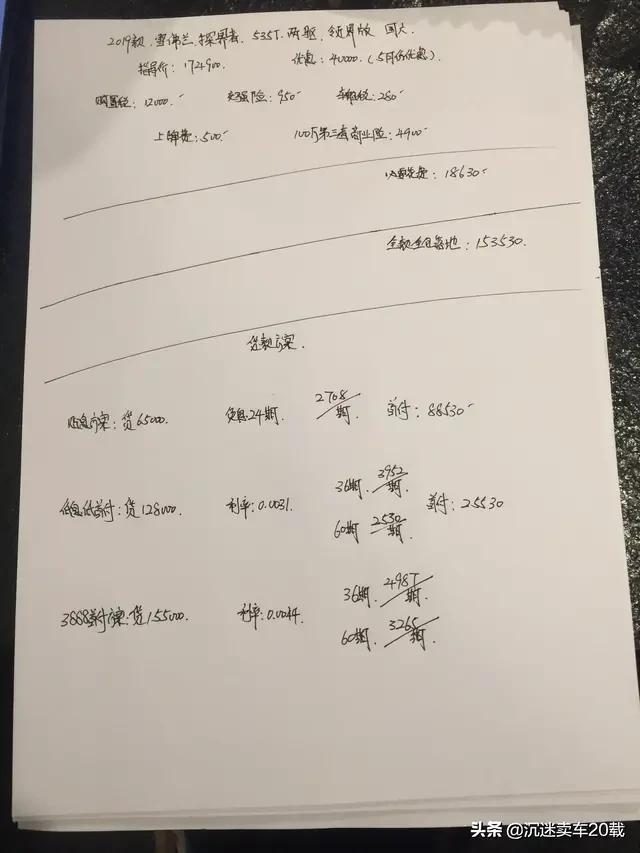 2019款.雪佛兰.探界者.535T.两驱.领界版 国六
指导价:174900. 优惠:40000.(5月份优惠)
购置税:12000. 交强险:950 车船税:280
上牌费:500 100万第三者商业险:4900
以上总费:18630
全款全包落地:153530.
贷款方案.
贴息方案:贷65000. 免息24期. 2708/期. 首付:88530
低息低首付:贷128000. 利率:0.0031 36期.3952/期. 首付:25530
60期 2530/期.
3888首付方案:贷155000. 利率:0.0044 36期.4987/期.
60期.3265/期.
头条 @沉迷卖车20载